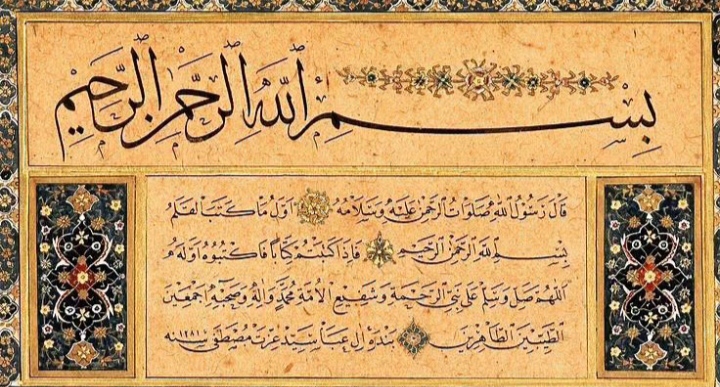 بِسْمِ اللّٰهِ الرَّحْمٰنِ الرَّحِيمِ
قَالَ رَسُولُ اللّٰهِ صَلَوَاتُ الرَّحْمٰنِ عَلَيْهِ وَسَلَامُهُ اَوَّلُ مَا كَتَبَ الْقَلَمُ
بِسْمِ اللّٰهِ الرَّحْمٰنِ الرَّحِيمِ فَاِذَا كَتَبْتُمْ كِتَابًا فَاكْتُبُوهُ اَوَّلَهُ
اَللّٰهُمَّ صَلِّ وَسَلِّمْ عَلٰى نَبِيِّ الرَّحْمَةِ وَشَفِيعِ الْاُمَّةِ مُحَمَّدٍ وَاٰلِهِ وَصَحْبِهِ اَجْمَعِينَ
الطَّيِّبِينَ الطَّاهِرِينَ بندهٔ اٰل عبا سيد عزت مصطفى سنه ١٢٨١